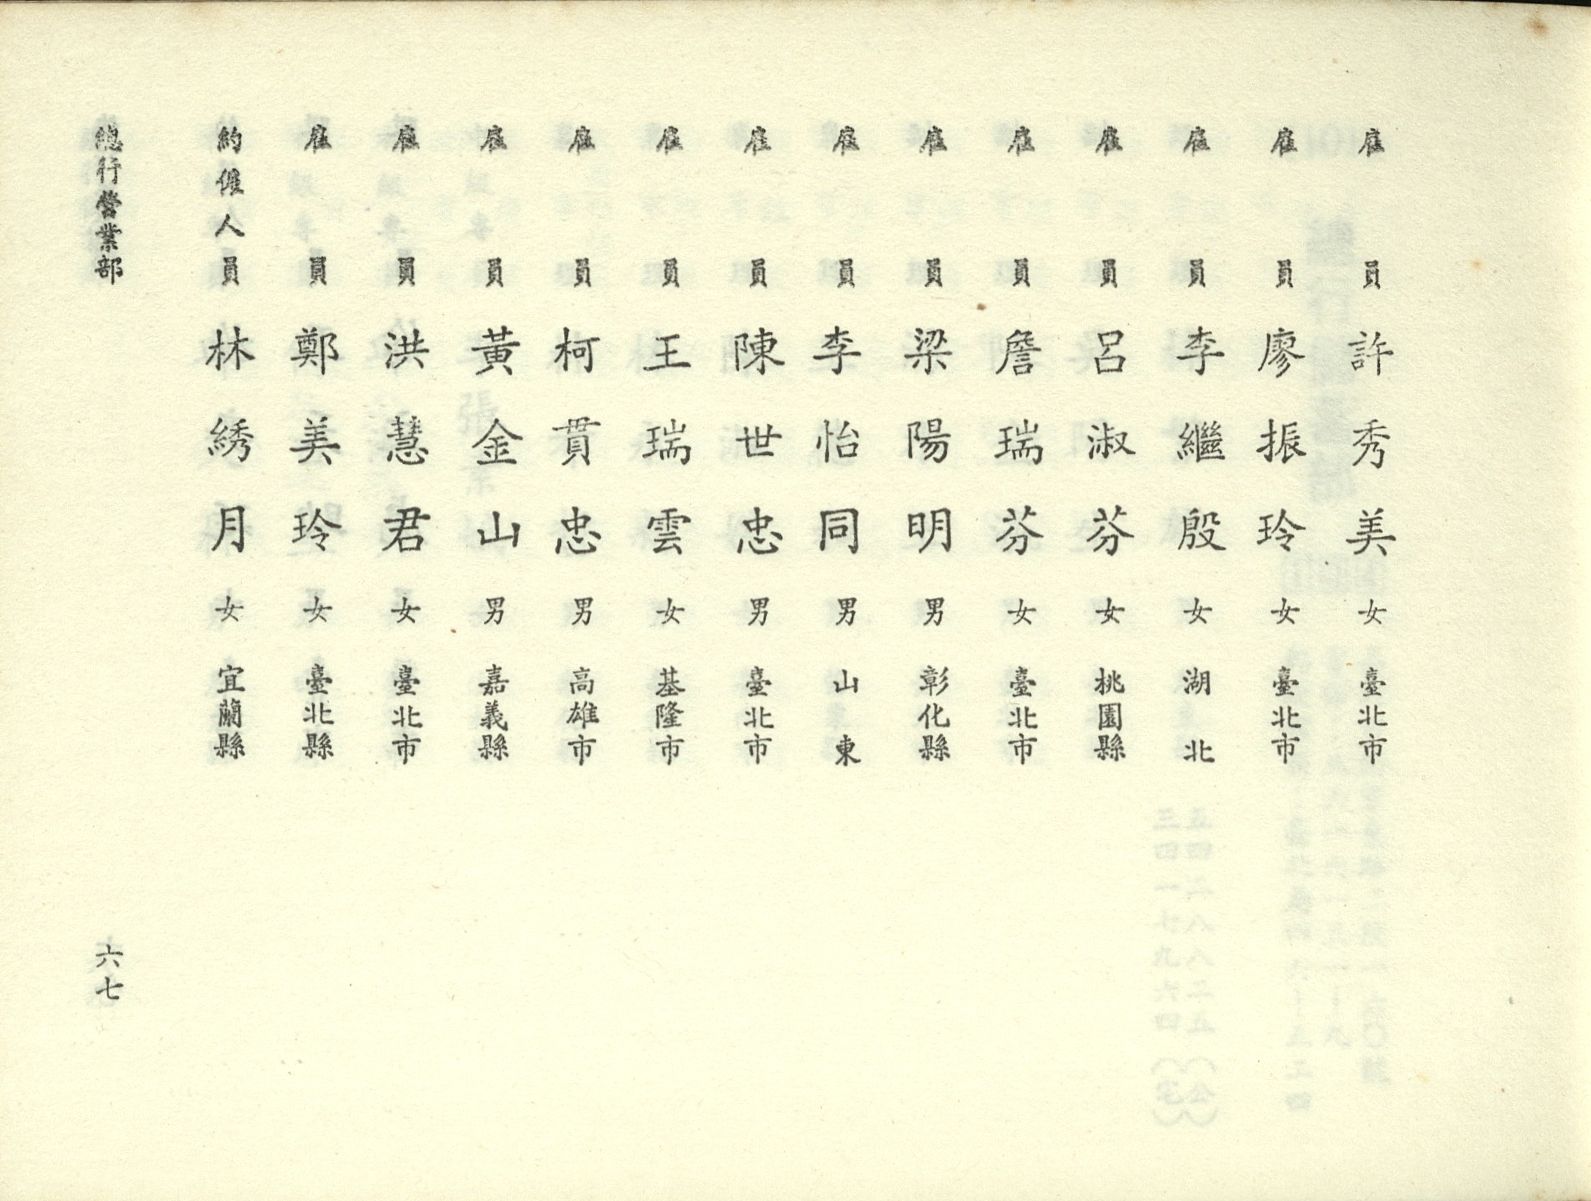 雇員許秀美女臺北市
雇員廖振玲女臺北市
雇員李繼殷女湖北
雇員呂淑芬女桃園縣
雇員詹瑞芬女臺北市
雇員梁陽明男彰化縣
雇員李怡同男山東
雇員陳世忠男臺北市
雇員王瑞雲女基隆市
雇員柯貫忠男高雄市
雇員黃金山男嘉義縣
雇員洪慧君女臺北市
雇員鄭美玲女臺北縣
約僱人員林綉月女宜蘭縣
總行營業部
六七